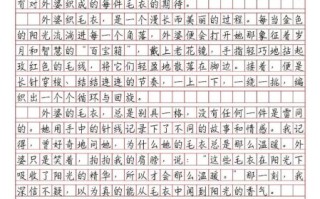 有对外婆织成的每件毛衣的期待。
外婆织毛衣，是一个漫长而美丽的过程。每当金色
的阳光流淌进每一个角落，外婆便会打开她那象征着岁
月和智慧的“百宝箱”，戴上老花镜，手指轻巧地拈起
玫红色的毛线，将它们轻盈地散落在脚边。接着，便是
长针穿梭，结结连连的节奏，一上一下，一绕一挑，编
织出一个个循环与回旋。
外婆的毛衣，总是别具一格，没有任何一件是雷同
的。她用手中的针线记录下了不同的故事和情感。我记
得，曾好奇地问她，为什么她的毛衣总是那么温暖。外
婆只是笑着，拍拍我的肩膀，说：“这些毛衣在阳光下
吸收了阳光的精华，所以才会那么温暖。”那一刻，我
深信不疑，以为真的能从毛衣中闻到阳光的香气。